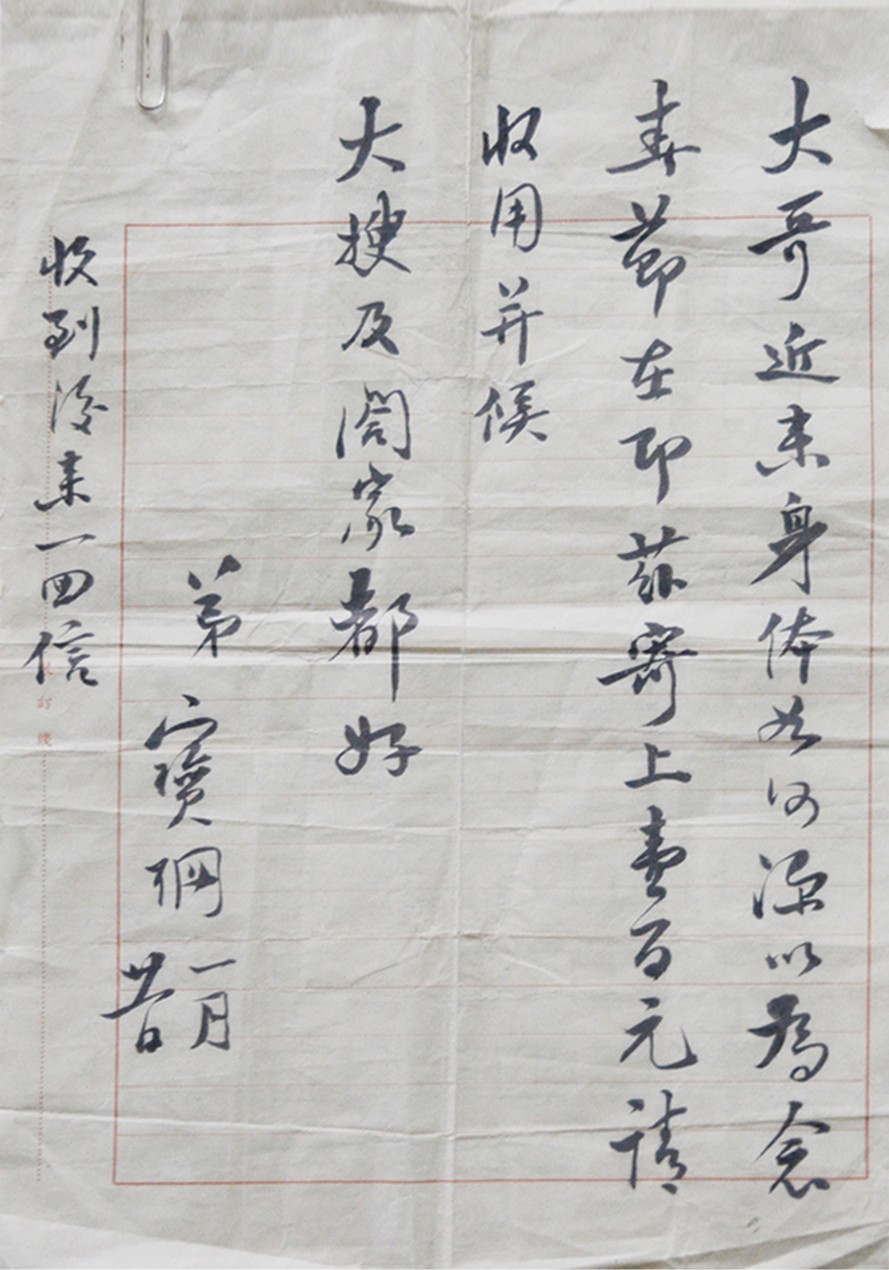 大哥近来身体如何深以为念
春节在即兹寄上壹百元请
收用并候
大搜及阁家都好
弟 宝纲 一月廿日
收到后来一回信
订线